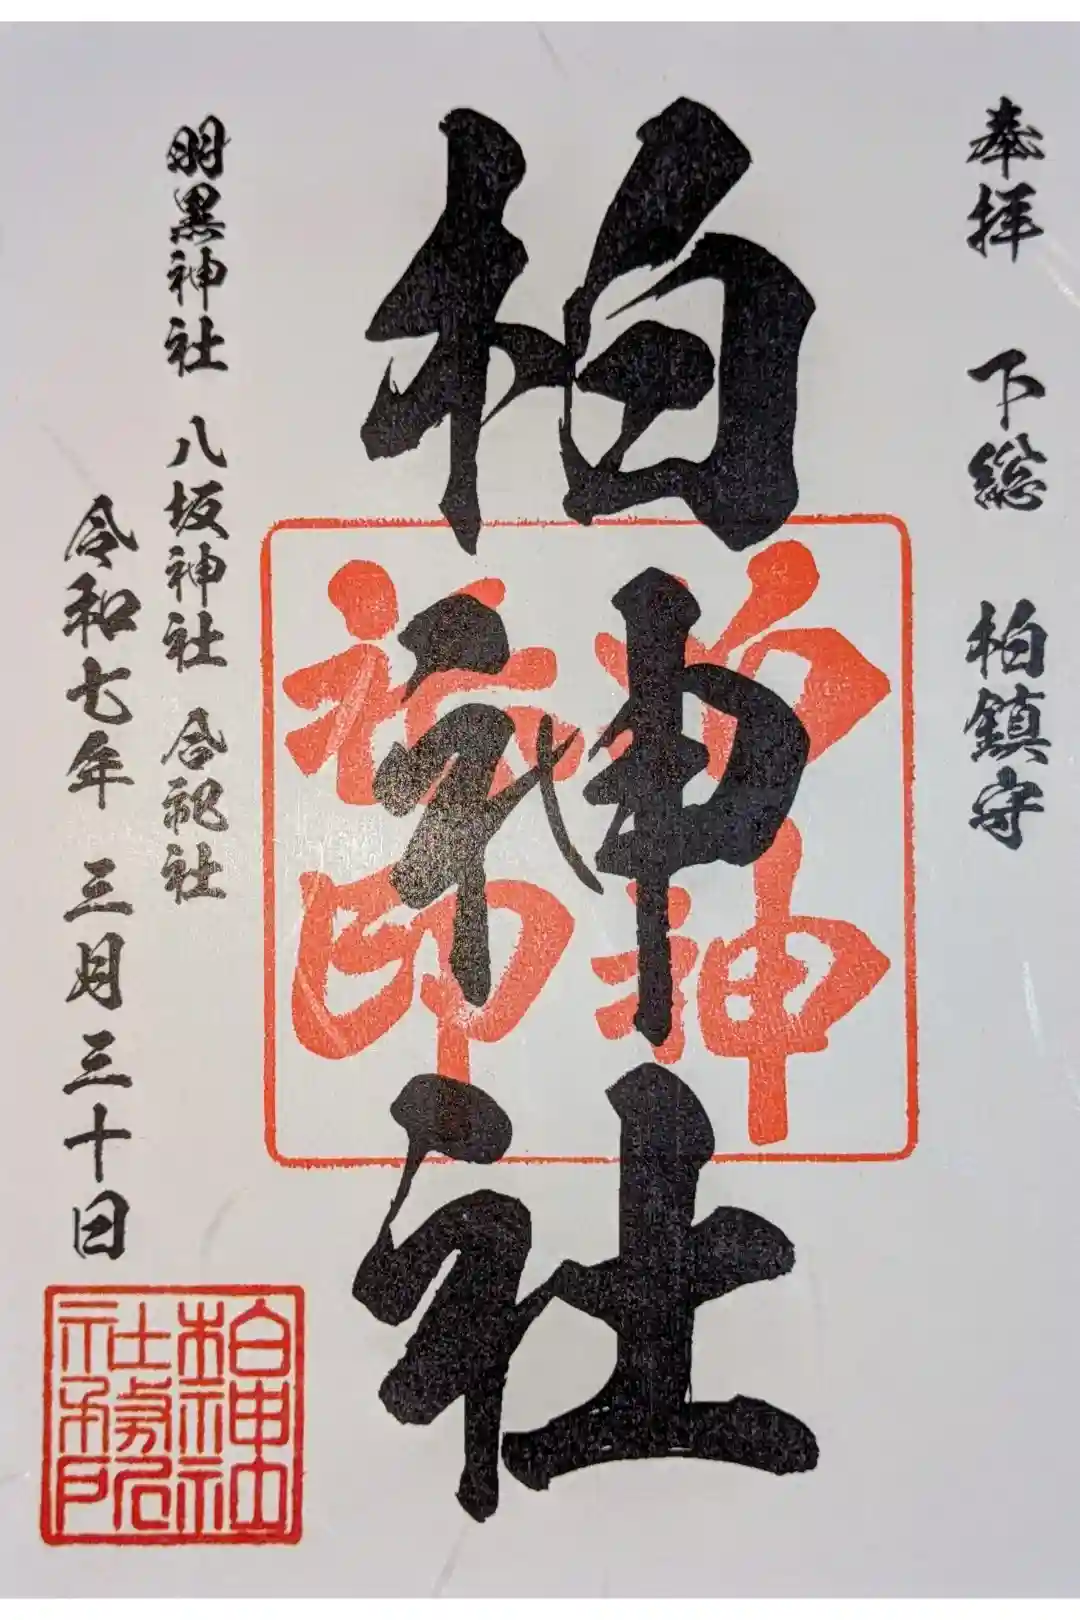 奉拝 下総 柏鎮守
柏神社
羽黒神社 八坂神社 合祀社
令和七年 三月三十日
柏神
社印
柏神社
社務所